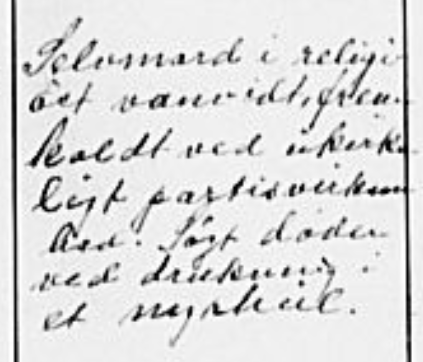 Selvmord i religi
øst vanvidt, frem-
kaldt ved ukirke-
ligt partisvirksom
hed. Søgt døden
ved drukning i
et